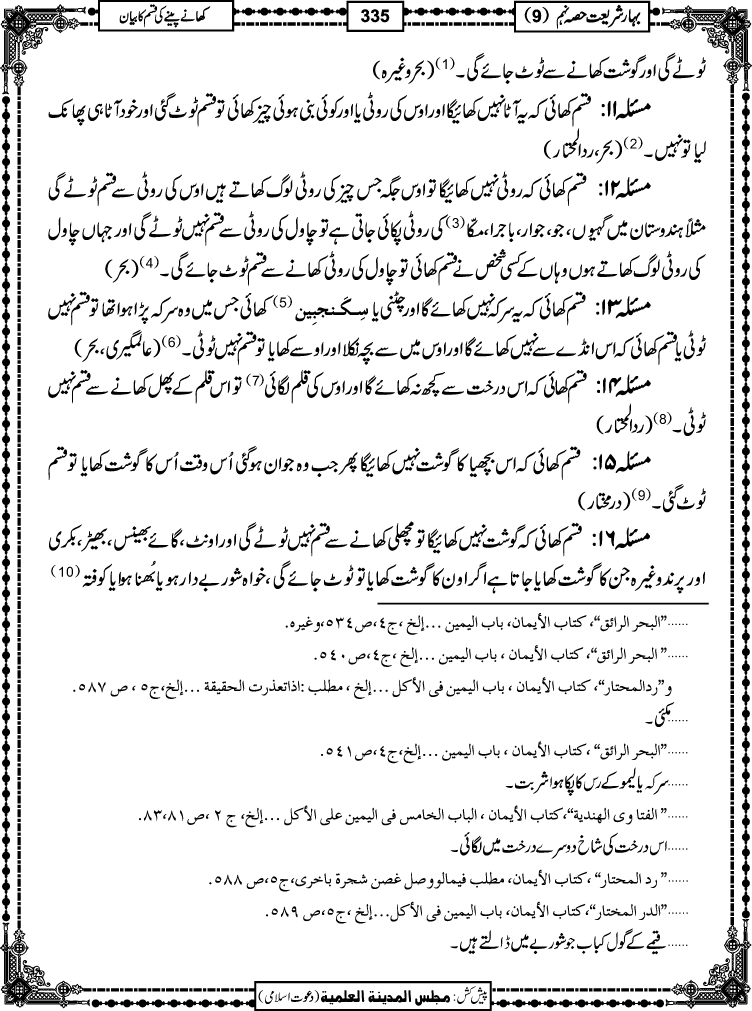 بہار شریعت حصہ نہم (9)
335
کھانے پینے کی قسم کا بیان
ٹوٹے گی اور گوشت کھانے سے ٹوٹ جائے گی۔(1) (بحر وغیرہ)
مسئلہ ۱۱: قسم کھائی کہ یہ آٹا نہیں کھائیگا اور اوس کی روٹی یا اور کوئی بنی ہوئی چیز کھائی تو قسم ٹوٹ گئی اور خود آٹا ہی پھانک
لیا تو نہیں۔(2) (بحر، ردالمحتار)
مسئلہ ۱۲: قسم کھائی کہ روٹی نہیں کھائیگا تو اوس جگہ جس چیز کی روٹی لوگ کھاتے ہیں اوس کی روٹی سے قسم ٹوٹے گی
مثلاً ہندوستان میں گیہوں، جو، جوار، باجرا، مکّا(3) کی روٹی پکائی جاتی ہے تو چاول کی روٹی سے قسم نہیں ٹوٹے گی اور جہاں چاول
کی روٹی لوگ کھاتے ہوں وہاں کے کسی شخص نے قسم کھائی تو چاول کی روٹی کھانے سے قسم ٹوٹ جائے گی۔(4) (بحر)
مسئلہ ۱۳: قسم کھائی کہ یہ سرکہ نہیں کھائے گا اور چٹنی یا سِکَنجبِین(5) کھائی جس میں وہ سرکہ پڑا ہوا تھا تو قسم نہیں
ٹوٹی یا قسم کھائی کہ اس انڈے سے نہیں کھائے گا اور اوس میں سے بچہ نکلا اور اوسے کھایا تو قسم نہیں ٹوٹی۔(6) (عالمگیری، بحر)
مسئلہ ۱۴: قسم کھائی کہ اس درخت سے کچھ نہ کھائے گا اور اوس کی قلم لگائی(7) تو اس قلم کے پھل کھانے سے قسم نہیں
ٹوٹی۔(8) (ردالمحتار)
مسئلہ ۱۵: قسم کھائی کہ اس بچھیا کا گوشت نہیں کھائیگا پھر جب وہ جوان ہوگئی اُس وقت اُس کا گوشت کھایا تو قسم
ٹوٹ گئی۔(9) (درمختار)
مسئلہ ۱۶: قسم کھائی کہ گوشت نہیں کھائیگا تو مچھلی کھانے سے قسم نہیں ٹوٹے گی اور اونٹ، گائے بھینس، بھیڑ، بکری
اور پرند وغیرہ جن کا گوشت کھایا جاتا ہے اگر اون کا گوشت کھایا تو ٹوٹ جائے گی، خواہ شوربے دار ہو یا بُھنا ہوا یا کوفتہ(10)
......”البحر الرائق“، كتاب الأيمان، باب اليمين ...إلخ ،ج٤،ص٥٣٤،وغيره.
......” البحر الرائق“، كتاب الأيمان ، باب اليمين ...إلخ ،ج٤،ص٥٤٠.
و ”ردالمحتار“، كتاب الأيمان، باب اليمين فى الأكل ...إلخ ، مطلب :اذاتعذرت الحقيقة ...إلخ،ج٥ ، ص ٥٨٧.
......مکئی۔
......”البحر الرائق“ ،كتاب الأيمان ، باب اليمين ...إلخ،ج٤،ص٥٤١.
......سرکہ یا لیمو کے رس کا پکا ہوا شربت۔
......” الفتاوى الهندية“،كتاب الأيمان ، الباب الخامس فى اليمين على الأكل ...إلخ، ج ٢ ،ص٨٣،٨١.
......اس درخت کی شاخ دوسرے درخت میں لگائی۔
......” رد المحتار“ ،كتاب الأيمان، مطلب فيمالووصل غصن شجرة باخرى،ج٥،ص ٥٨٨.
......”الدر المختار“،كتاب الأيمان، باب اليمين فى الأكل...إلخ ،ج٥،ص ٥٨٩.
......قیمے کے گول کباب جو شوربے میں ڈالتے ہیں۔
پیش کش: مجلس المدينة العلمية (دعوت اسلامی)